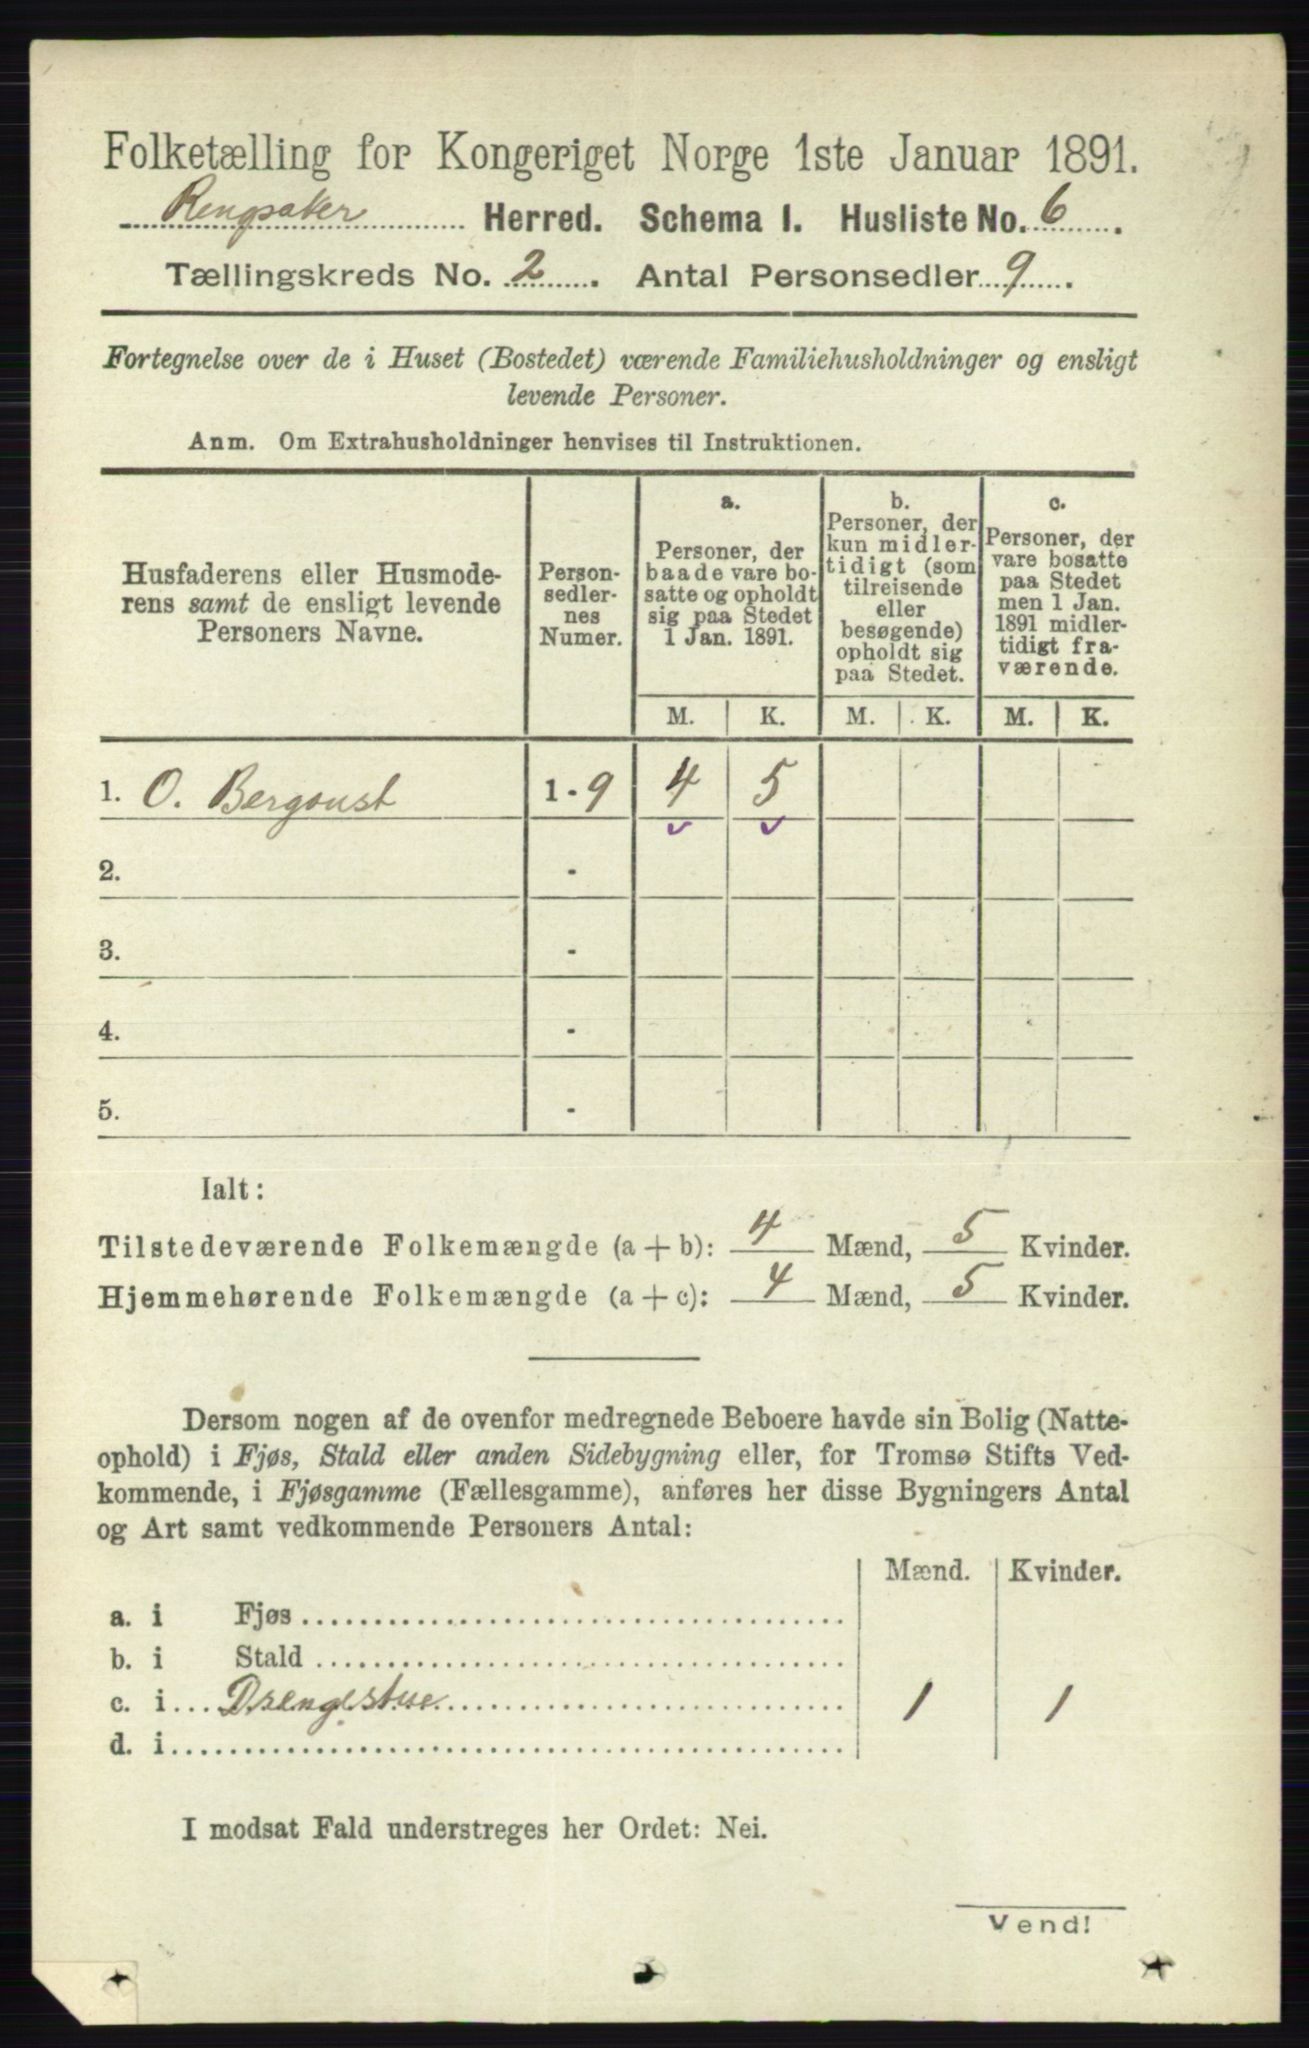 Folketælling for Kongeriget Norge 1ste Januar 1891.
Ringsaker Herred. Schema I. Husliste No. 6.
Tællingskreds No. 2. Antal Personsedler 9.
Fortegnelse over de i Huset (Bostedet) værende Familiehusholdninger og ensligt
levende Personer.
Anm. Om Extrahusholdninger henvises til Instruktionen.
Husfaderens eller Husmode-
rens samt de ensligt levende
Personers Navne.
Person-
sedler-
nes
Numer.
a.
Personer, der
baade vare bo-
satte og opholdt
sig paa Stedet
1 Jan. 1891.
b.
Personer, der
kun midler-
tidigt (som
tilreisende
eller
besøgende)
opholdt sig
paa Stedet.
c.
Personer, der
vare bosatte
paa Stedet
men 1 Jan.
1891 midler-
tidigt fra-
værende.
M. K. M. K. M. K.
1. O. Bergoust 1 - 9 4 5
2. -
3. -
4. -
5. -
Ialt:
Tilstedeværende Folkemængde (a + b): 4 Mænd, 5 Kvinder.
Hjemmehørende Folkemængde (a + c): 4 Mænd, 5 Kvinder.
Dersom nogen af de ovenfor medregnede Beboere havde sin Bolig (Natte-
ophold) i Fjøs, Stald eller anden Sidebygning eller, for Tromsø Stifts Ved-
kommende, i Fjøsgamme (Fællesgamme), anføres her disse Bygningers Antal
og Art samt vedkommende Personers Antal:
Mænd. Kvinder.
a. i Fjøs
b. i Stald
c. i Drengestue 1 1
d. i
I modsat Fald understreges her Ordet: Nei.
Vend!